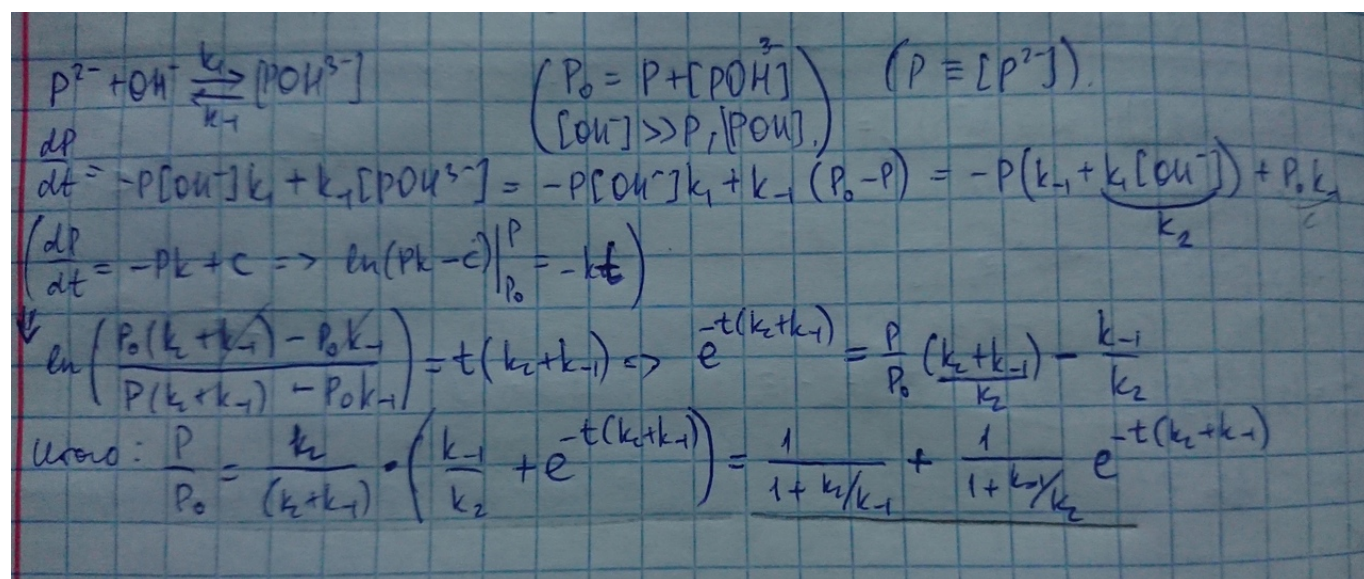 P²⁻ + OH⁻ ⇌ [POH³⁻] k₁ k₋₁ (P₀ = P + [POH]³⁻ (P ≡ [P²⁻]).
[OH⁻] >> P, [POH].)
dP/dt = -P[OH⁻]k₁ + k₋₁[POH³⁻] = -P[OH⁻]k₁ + k₋₁(P₀ - P) = -P(k₋₁ + k₁[OH⁻]) + P₀k₋₁
k₂ c
(dP/dt = -Pk + c => ln(Pk - c)|ᴾ_P₀ = -kt)
ln((P₀(k₂ + k₋₁) - P₀k₋₁)/(P(k₂ + k₋₁) - P₀k₋₁)) = t(k₂ + k₋₁) => e^(-t(k₂ + k₋₁)) = P/P₀ (k₂ + k₋₁)/k₂ - k₋₁/k₂
Итого: P/P₀ = k₂/(k₂ + k₋₁) • (k₋₁/k₂ + e^(-t(k₂ + k₋₁))) = 1/(1 + k₂/k₋₁) + 1/(1 + k₋₁/k₂) e^(-t(k₂ + k₋₁))